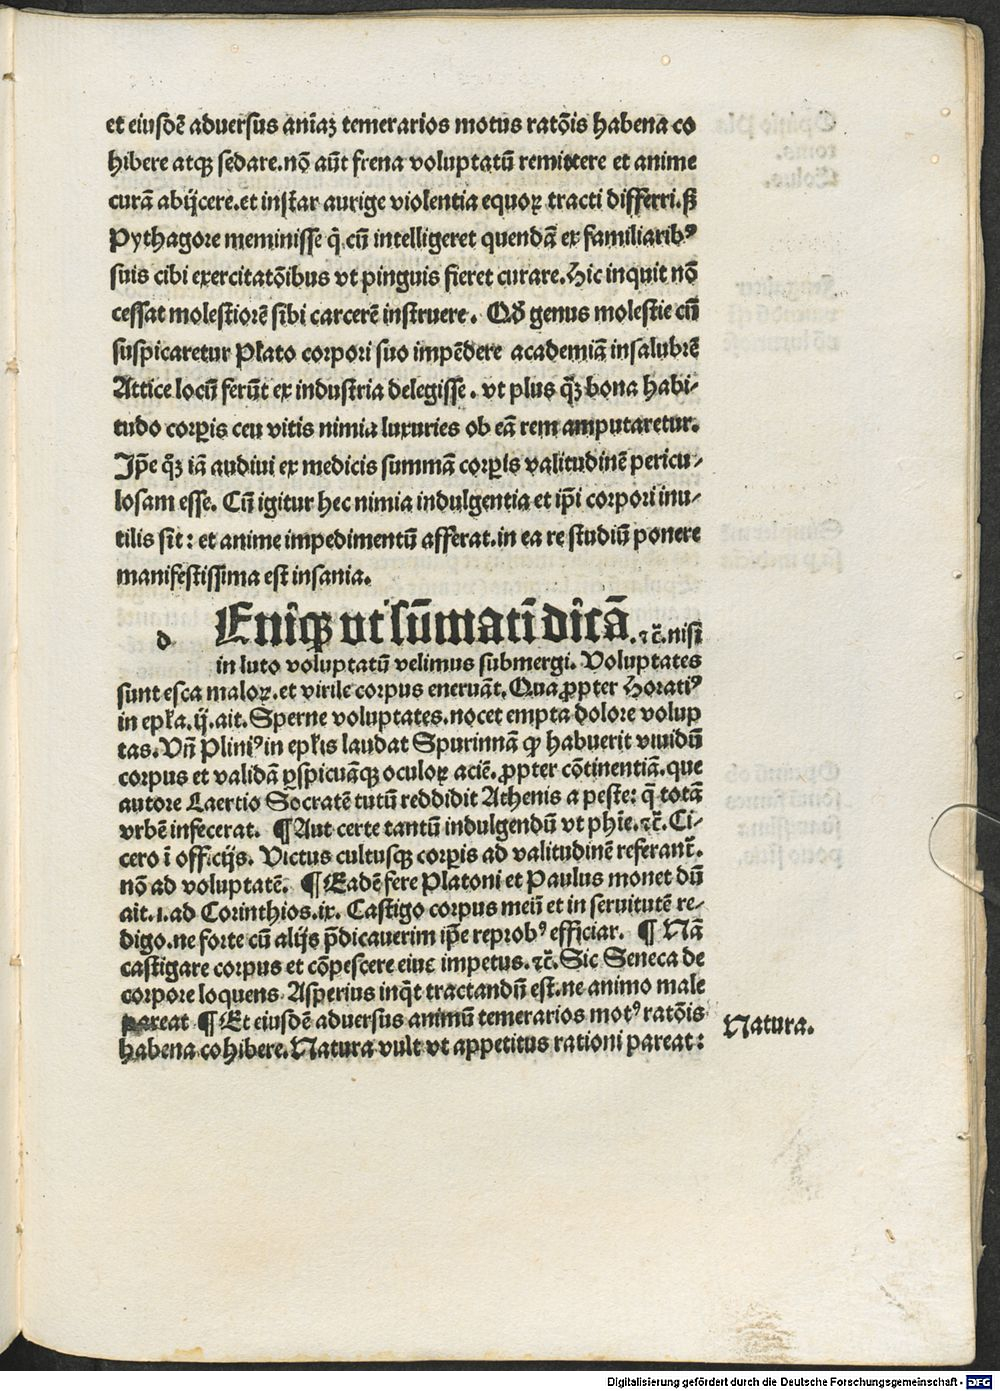 et eiusdē adversus aniaʒ temerarios motus ratōis habena co
hibere atqʒ sedare. nō aūt frena voluptatū remittere et anime
curā abijcere. et instar aurige violentia equoꝝ tracti differri. sꝫ
Pythagore meminisse q̄ cū intelligeret quendā ex familiaribꝰ
suis cibi exercitatōibus vt pinguis fieret curare. Hic inquit nō
cessat molestiorē sibi carcerē instruere. Qd̄ genus molestie cū
suspicaretur Plato corpori suo impēdere academiā insalubrē
Attice locū ferūt ex industria delegisse. vt plus q̄ʒ bona habi-
tudo corꝑis ceu vitis nimia luxuries ob eā rem amputaretur.
Ip̄e q̄ʒ iā audivi ex medicis summā corꝑis valitudinē pericu-
losam esse. Cū igitur hec nimia indulgentia et ip̄i corpori inu-
tilis sit: et anime impedimentū afferat. in ea re studiū ponere
manifestissima est insania.
d Eniqʒ vt sūmati dicā. ⁊c̄. nisi
in luto voluptatū velimus submergi. Voluptates
sunt esca maloꝝ. et virile corpus enervāt. Qua ꝓpter Horatiꝰ
in epl̄a. ij. ait. Sperne voluptates. nocet empta dolore volup
tas. Vn̄ Pliniꝰ in epl̄is laudat Spurinnā ꝙ habuerit vividū
corpus et validā ꝑspicuāqʒ oculoꝝ aciē. ꝓpter cōtinentiā. que
autore Laertio Socratē tutū reddidit Athenis a peste: q̄ totā
vrbē infecerat. ¶ Aut certe tantū indulgendū vt phīe. ⁊c̄. Ci-
cero ī officijs. Victus cultusqʒ corꝑis ad valitudinē referant̄.
nō ad voluptatē. ¶ Eadē fere Platoni et Paulus monet dū
ait. 1. ad Corinthios. ix. Castigo corpus meū et in servitutē re-
digo. ne forte cū alijs p̄dicaverim ip̄e reprobꝰ efficiar. ¶ Nā
castigare corpus et cōpescere eiuc impetus. ⁊c̄. Sic Seneca de
corpore loquens. Asperius inq̄t tractandū est. ne animo male
pareat ¶ Et eiusdē adversus animū temerarios motꝰ ratōis
habena cohibere. Natura vult vt appetitus rationi pareat:
Natura.
Digitalisierung gefördert durch die Deutsche Forschungsgemeinschaft - DFG